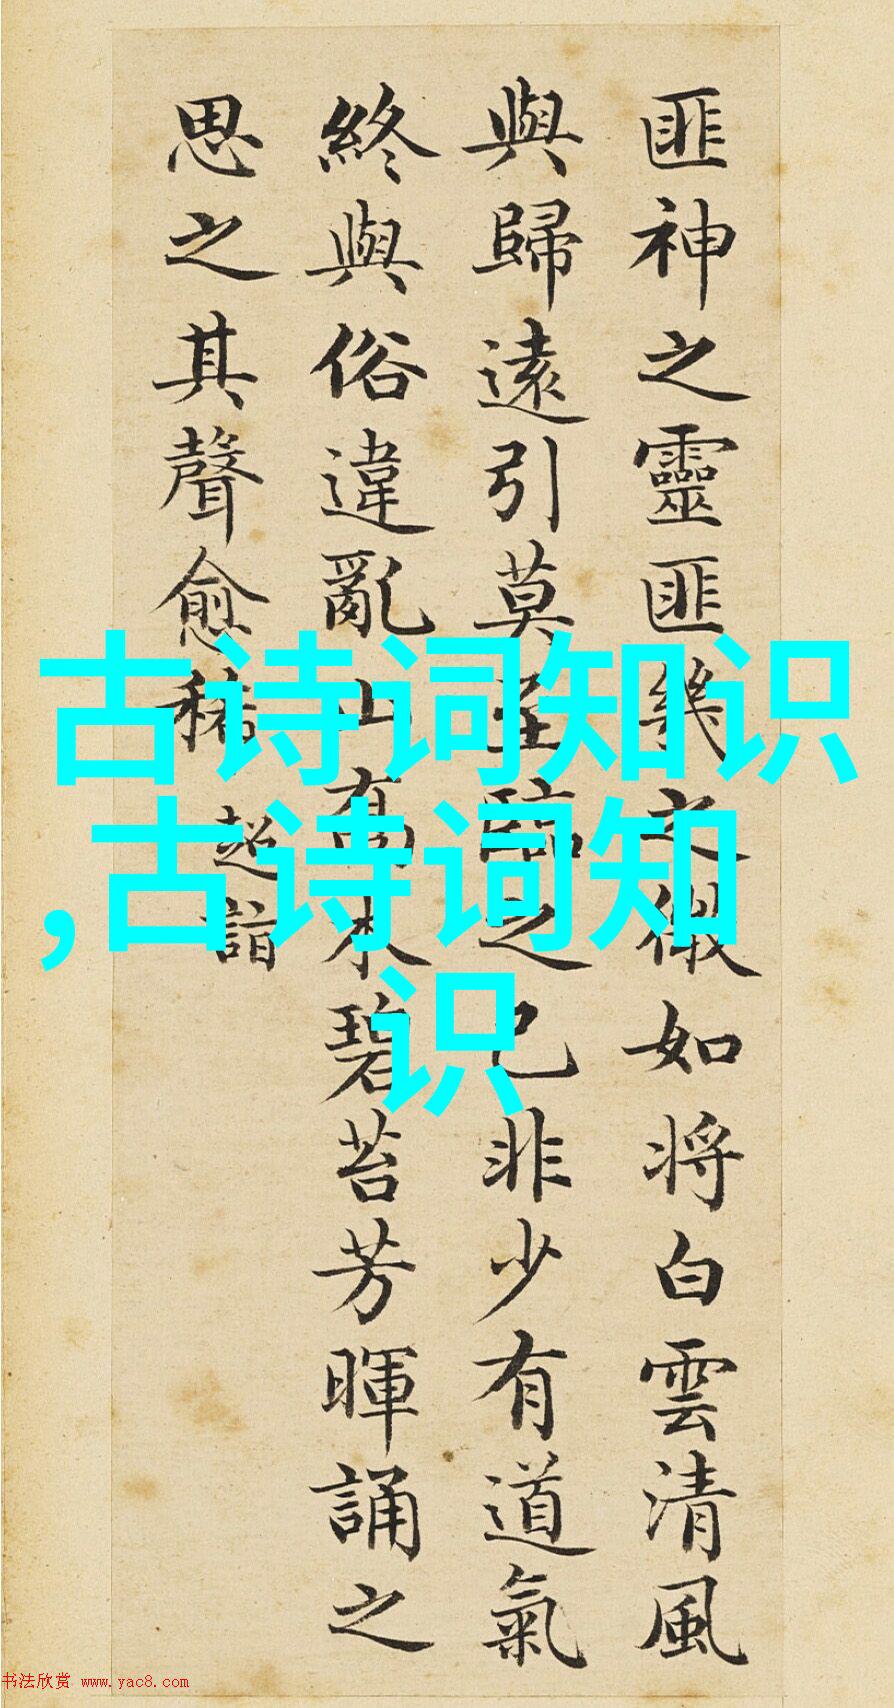 匪神之靈匪幾之微如将白雲清風
與歸遠引莫至臨之已非少有道氣
終與俗違亂山高木碧苔芳暉誦之
思之其聲愈稀 超詣
古诗词知识
,古诗词知
识
书法欣赏 www.yac8.com